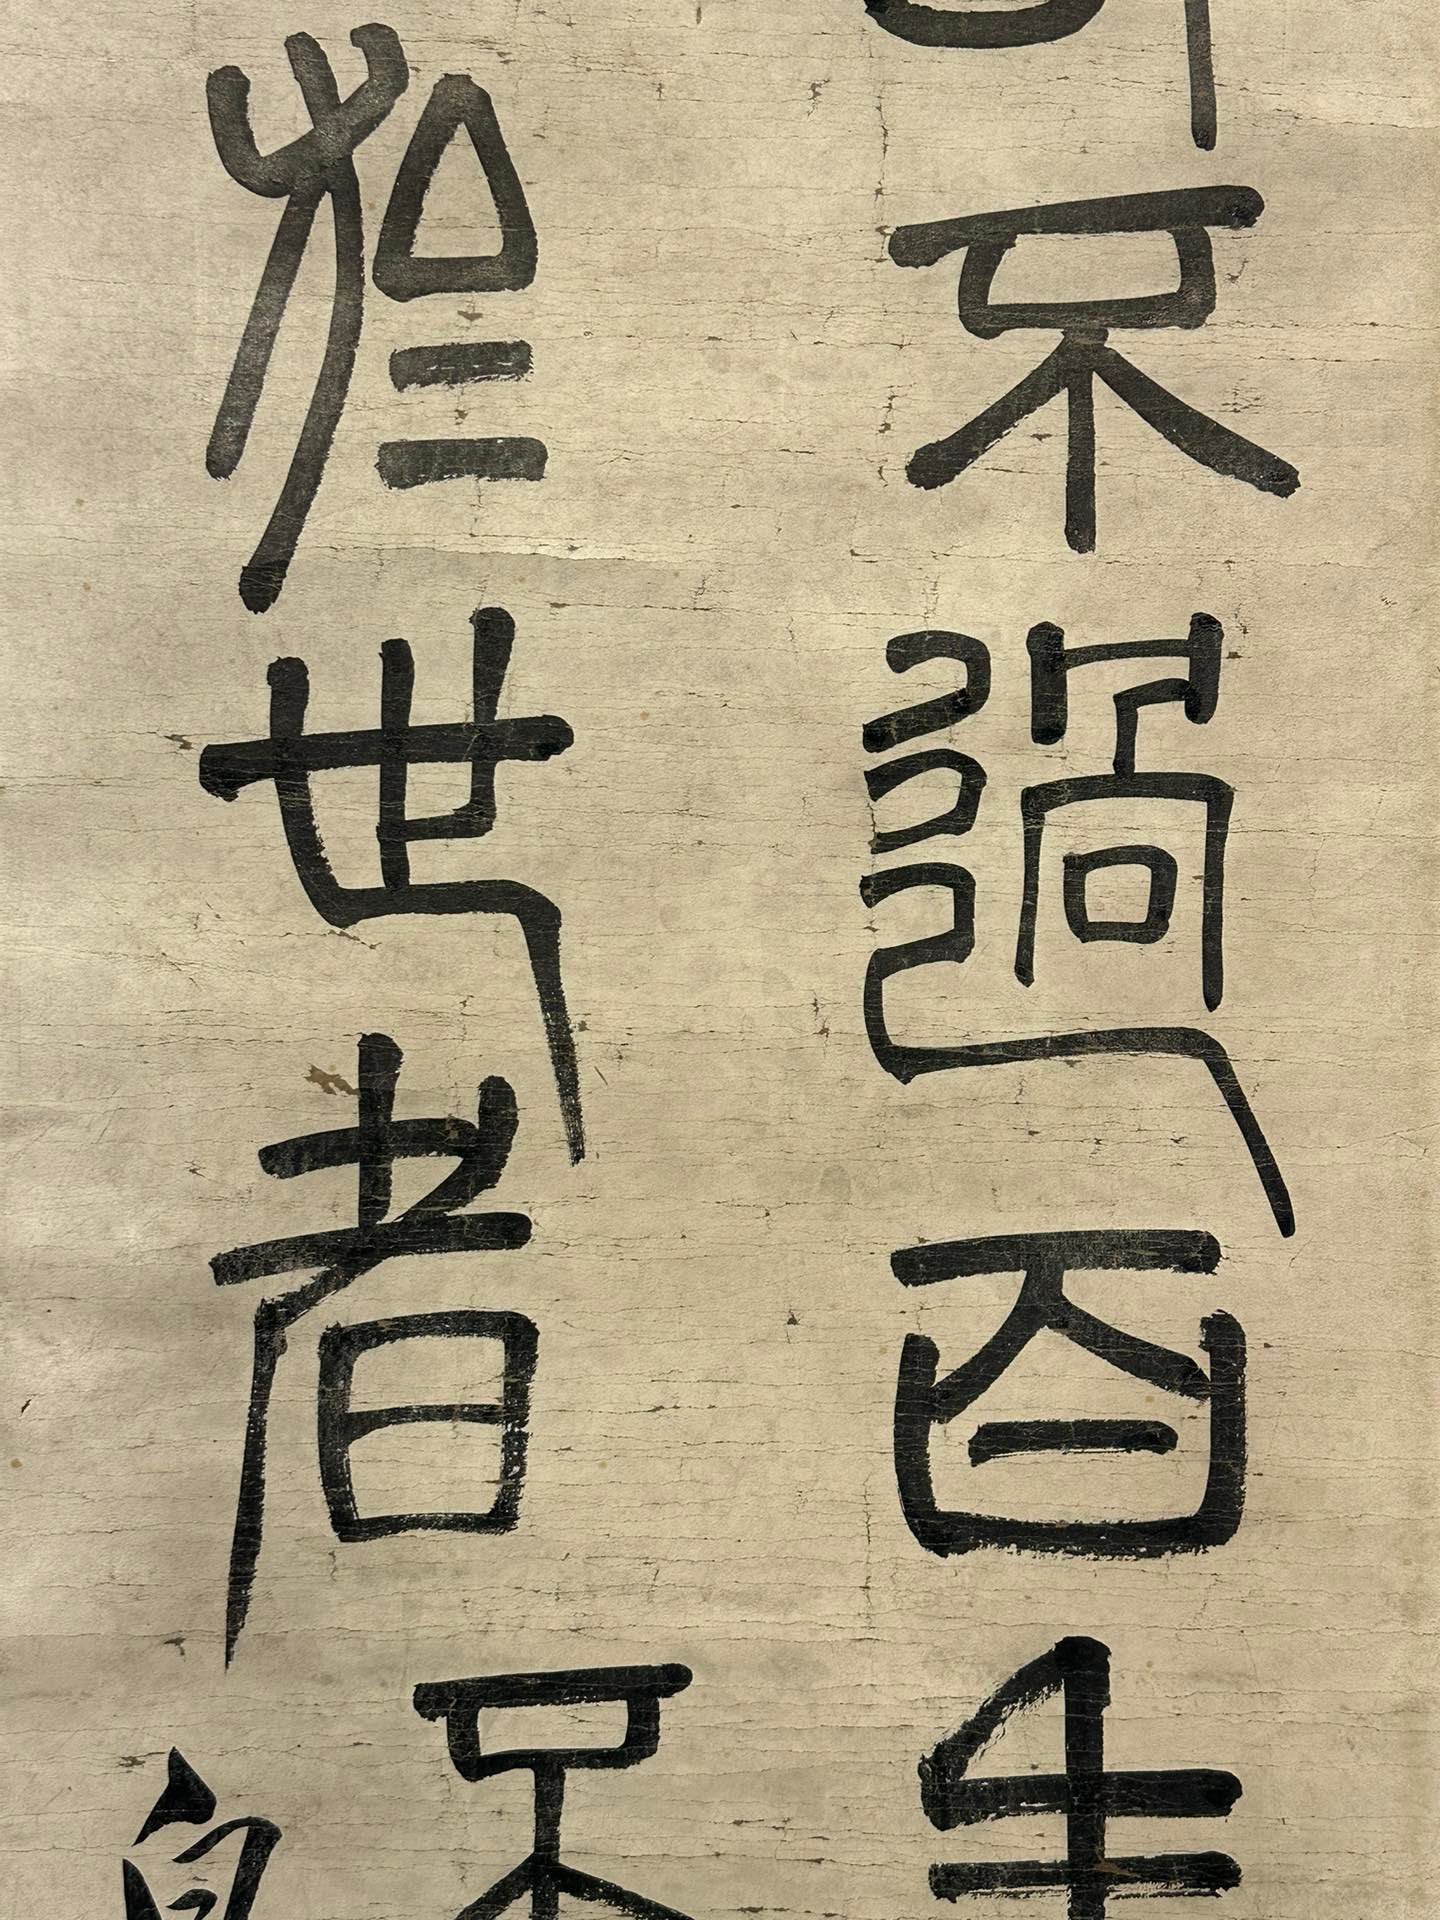 不過百年
於世者不